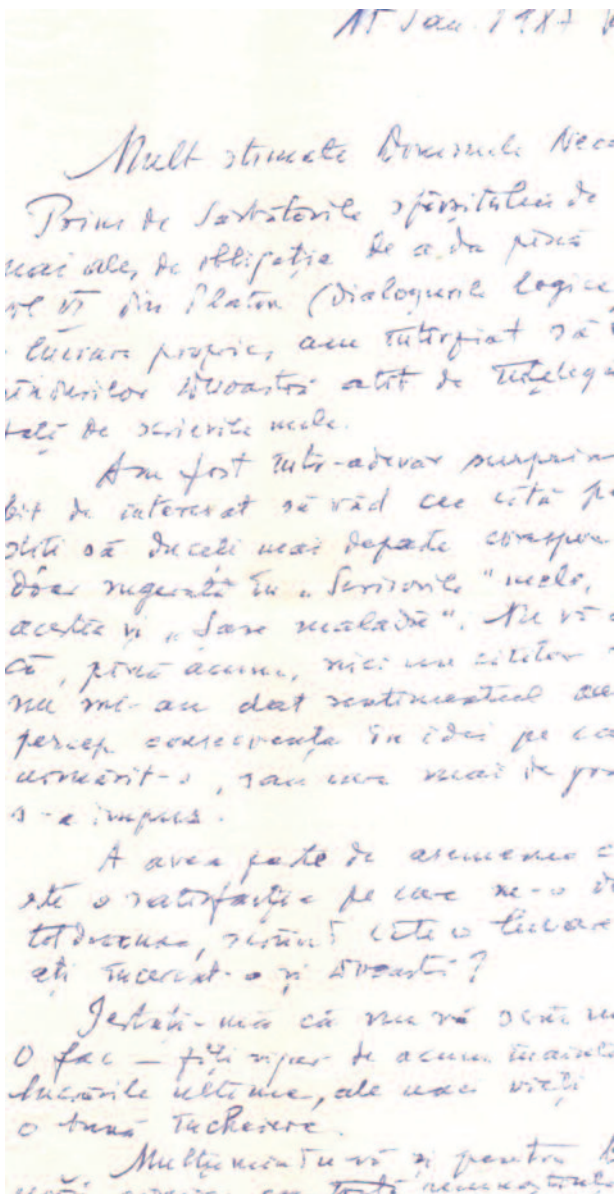 15 Ian. 1987
Mult stimate Domnule Neco
Prins de sărbătorile sfîrșitului de
mai ales, de obligația de a da pînă
vol VI din Platon (Dialogurile logice
lucrare proprie, am întîrziat să
gîndurilor dvoastră atît de înțeleg
față de scrierile mele.
Am fost într-adevăr surprin
bit de interesat să văd cu cîtă p
să duceți mai departe corespon
doar sugerată în „Scrisorile" mele,
acestea și „Șase maladii". Nu vă
că, pînă acum, nici un cititor
nu mi-au dat sentimentul
percep consecvența în idei pe ca
urmărit-o, sau care mai de
s-a impus.
A avea parte de asemenea
ste o satisfacție pe care ne-o d
totdeauna, scriind cîte o lucrare
ați încercat-o și dvoastră?
Iertați-mă că nu vă scriu
O fac — fiți sigur de acum înainte
lucrările ultime, ale unei vieți
o bună încheiere.
Mulțumindu-vă și pentru